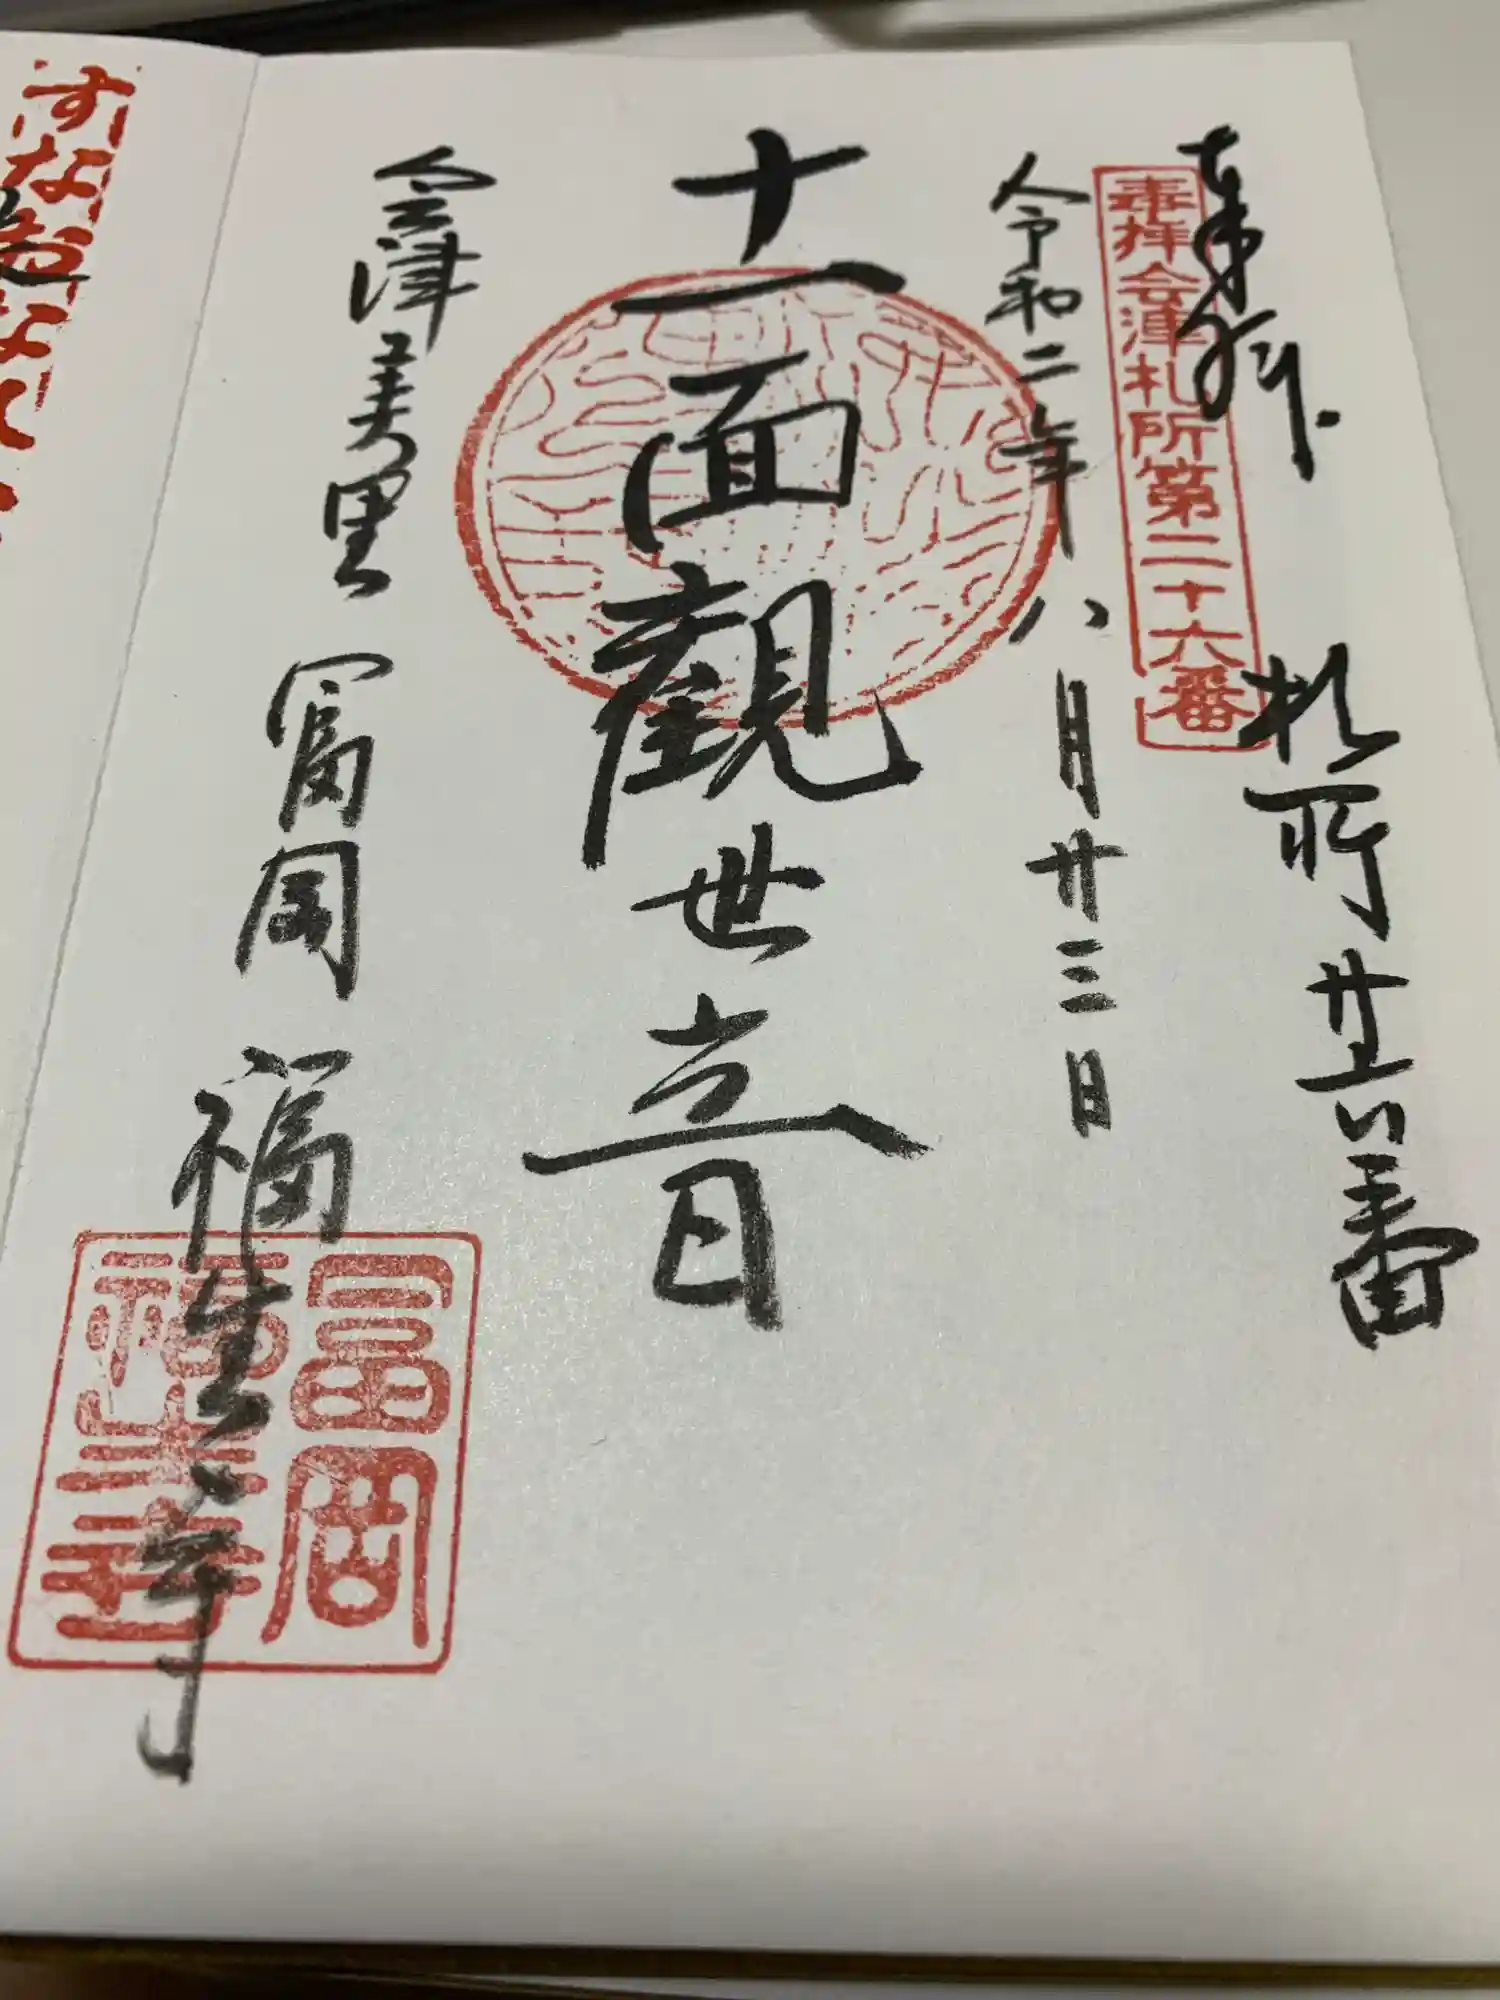 奉拝
札所廿六番
奉拝会津札所第二十六番
令和二年八月廿三日
十一面觀世音
会津美里 冨岡 福生寺
冨岡
福生寺
すなおな